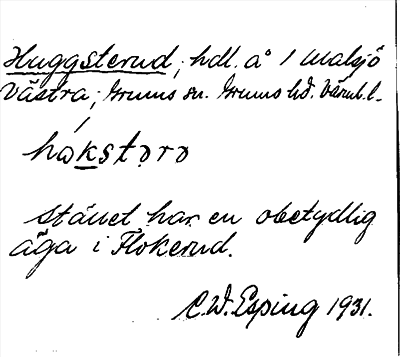 Huggsterud, hdl. å 1 Malsjö
Västra, Grums sn. Grums hd. Värml. l.
hakstərə
Stället har en obetydlig
äga i Flokerud.
C.W. Esping 1931.